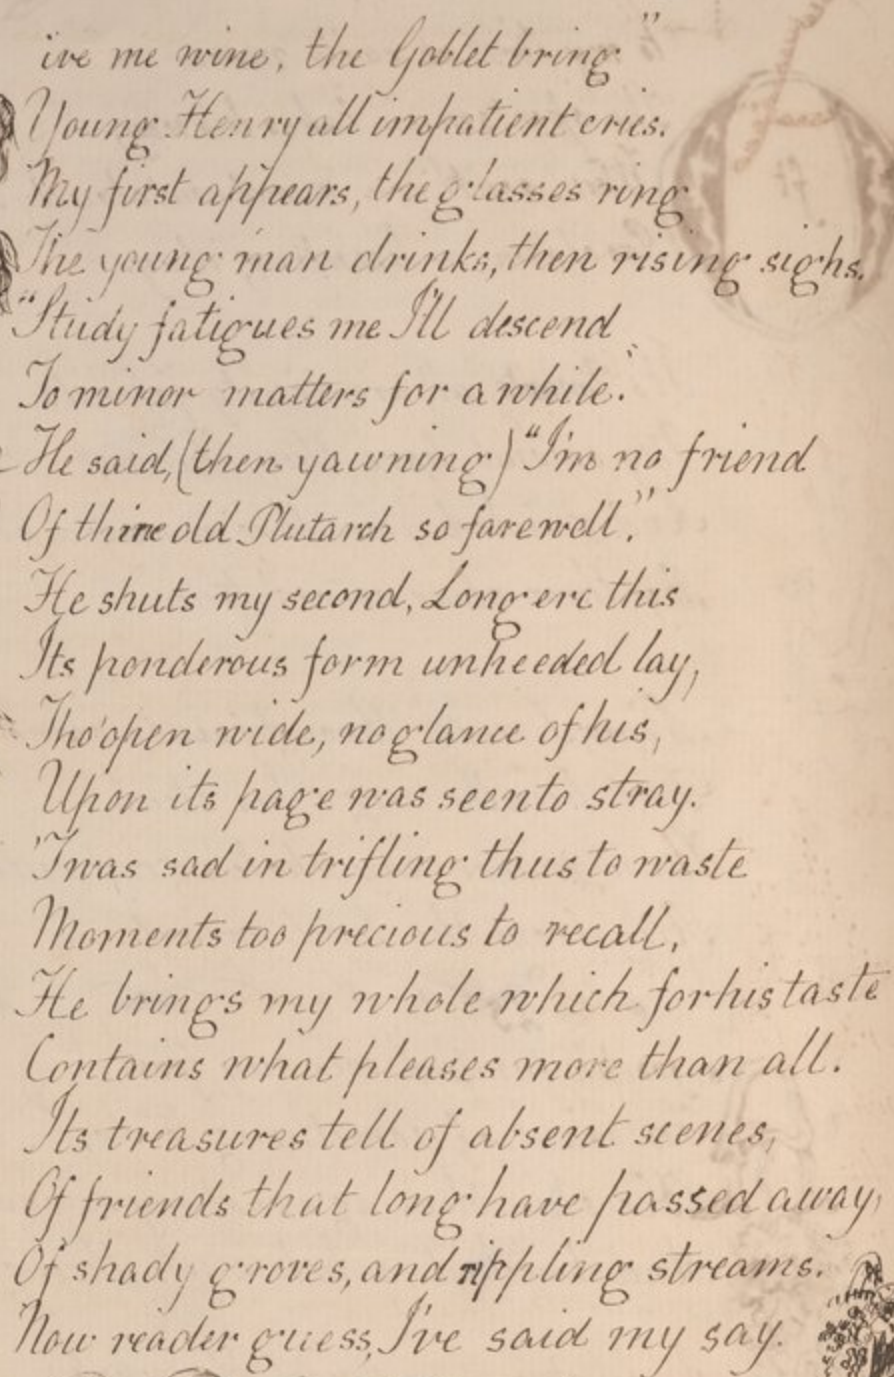 ive me wine, the Goblet bring"
Young Henry all impatient cries.
My first appears, the glasses ring
The young man drinks, then rising sighs.
"Study fatigues me I'll descend
To minor matters for a while."
He said, (then yawning) "I'm no friend
Of thine old Plutarch so farewell."
He shuts my second, Long ere this
Its ponderous form unheeded lay,
Tho' open wide, no glance of his,
Upon its page was seen to stray.
'Twas sad in trifling thus to waste
Moments too precious to recall,
He brings my whole which for his taste
Contains what pleases more than all.
Its treasures tell of absent scenes,
Of friends that long have passed away,
Of shady groves, and rippling streams.
Now reader guess, I've said my say.